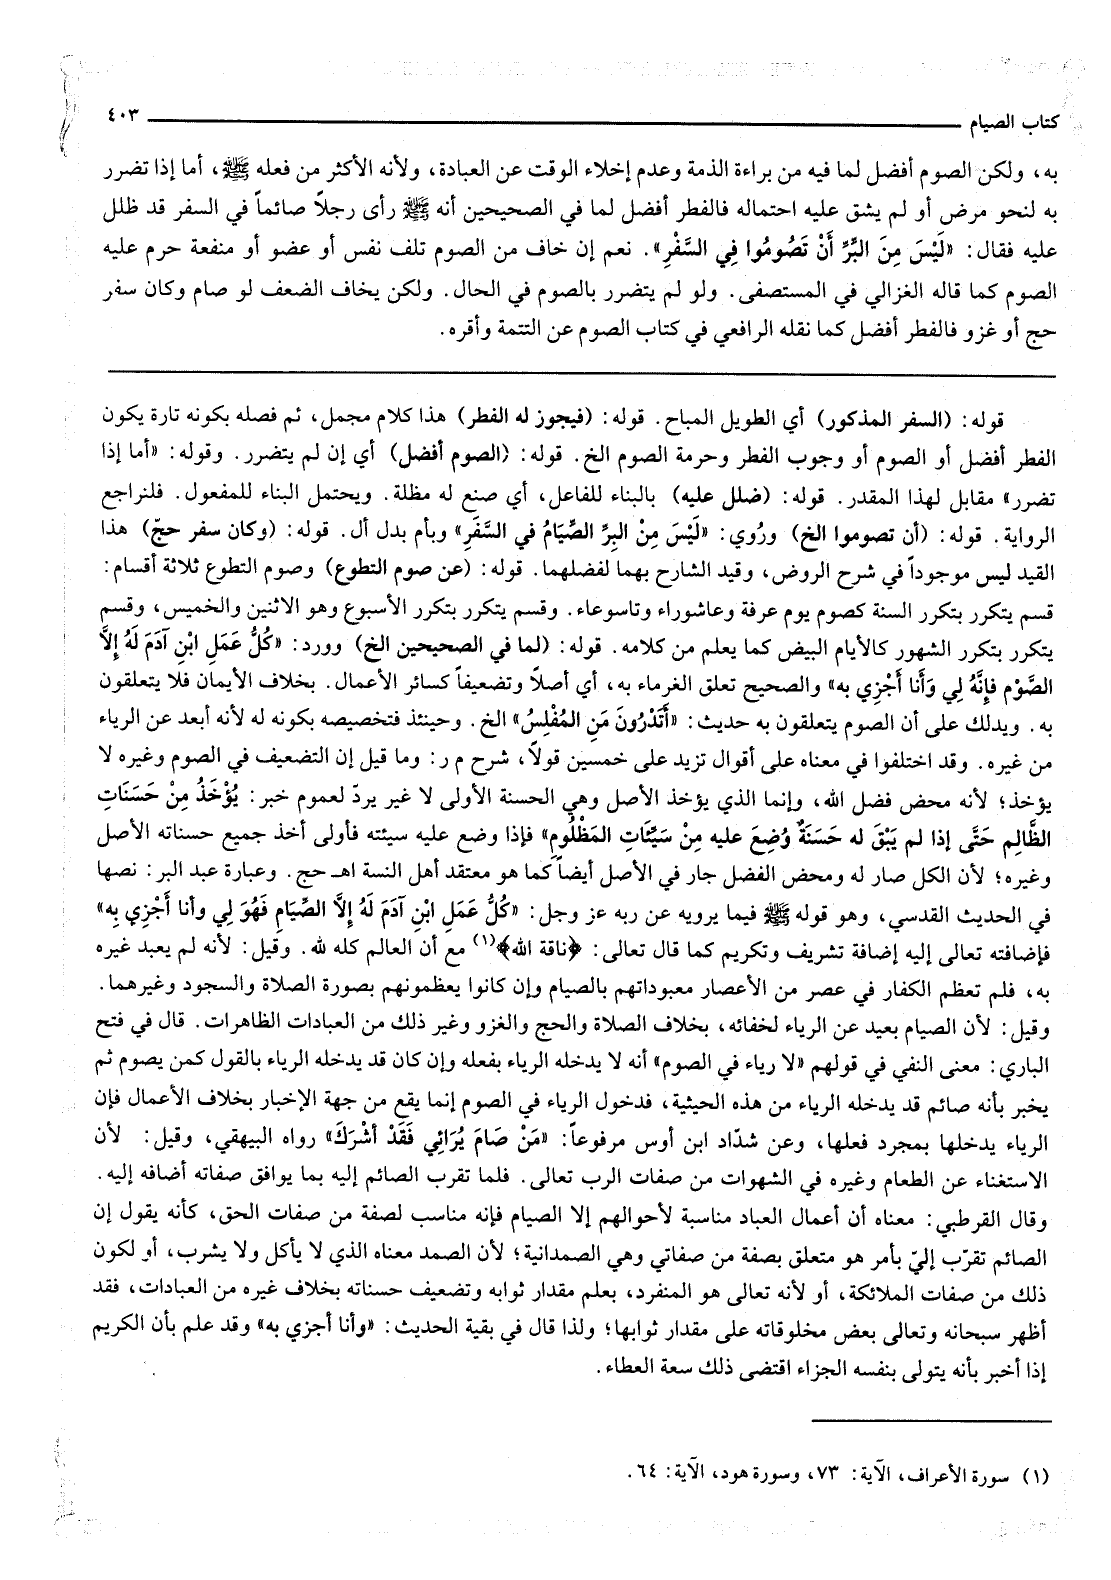 كتاب الصيام ٤٠٣
به، ولكن الصوم أفضل لما فيه من براءة الذمة وعدم إخلاء الوقت عن العبادة، ولأنه الأكثر من فعله ﷺ، أما إذا تضرر
به لنحو مرض أو لم يشق عليه احتماله فالفطر أفضل لما في الصحيحين أنه ﷺ رأى رجلاً صائماً في السفر قد ظلل
عليه فقال: «لَيْسَ مِنَ البَّرِّ أَنْ تَصُومُوا فِي السَّفْرِ». نعم إن خاف من الصوم تلف نفس أو عضو أو منفعة حرم عليه
الصوم كما قاله الغزالي في المستصفى. ولو لم يتضرر بالصوم في الحال. ولكن يخاف الضعف لو صام وكان سفر
حج أو غزو فالفطر أفضل كما نقله الرافعي في كتاب الصوم عن التتمة وأقره.
قوله: (السفر المذكور) أي الطويل المباح. قوله: (فيجوز له الفطر) هذا كلام مجمل، ثم فصله بكونه تارة يكون
الفطر أفضل أو الصوم أو وجوب الفطر وحرمة الصوم الخ. قوله: (الصوم أفضل) أي إن لم يتضرر. وقوله: «أما إذا
تضرر» مقابل لهذا المقدر. قوله: (ضلل عليه) بالبناء للفاعل، أي صنع له مظلة. ويحتمل البناء للمفعول. فلنراجع
الرواية. قوله: (أن تصوموا الخ) ورُوي: «لَيْسَ مِنْ البِرِّ الصِّيَامُ في السَّفَرِ» وبأم بدل أل. قوله: (وكان سفر حجّ) هذا
القيد ليس موجوداً في شرح الروض، وقيد الشارح بهما لفضلهما. قوله: (عن صوم التطوع) وصوم التطوع ثلاثة أقسام:
قسم يتكرر بتكرر السنة كصوم يوم عرفة وعاشوراء وتاسوعاء. وقسم يتكرر بتكرر الأسبوع وهو الاثنين والخميس، وقسم
يتكرر بتكرر الشهور كالأيام البيض كما يعلم من كلامه. قوله: (لما في الصحيحين الخ) وورد: «كُلُّ عَمَلِ ابْنِ آدَمَ لَهُ إِلاَّ
الصَّوْم فإِنَّهُ لِي وَأَنا أَجْزِي به» والصحيح تعلق الغرماء به، أي أصلاً وتضعيفاً كسائر الأعمال. بخلاف الأيمان فلا يتعلقون
به. ويدلك على أن الصوم يتعلقون به حديث: «أَتَدْرُونَ مَنِ المُفْلِسُ» الخ. وحينئذ فتخصيصه بكونه له لأنه أبعد عن الرياء
من غيره. وقد اختلفوا في معناه على أقوال تزيد على خمسين قولاً، شرح م ر: وما قيل إن التضعيف في الصوم وغيره لا
يؤخذ؛ لأنه محض فضل الله، وإنما الذي يؤخذ الأصل وهي الحسنة الأولى لا غير يردّ لعموم خبر: يُؤْخَذُ مِنْ حَسَنَاتِ
الظَّالِمِ حَتَّى إذا لم يَبْقَ له حَسَنَةٌ وُضِعَ عليه مِنْ سَيِّئَاتِ المَظْلُومِ» فإذا وضع عليه سيئته فأولى أخذ جميع حسناته الأصل
وغيره؛ لأن الكل صار له ومحض الفضل جار في الأصل أيضاً كما هو معتقد أهل النسة اهـ حج. وعبارة عبد البر: نصها
في الحديث القدسي، وهو قوله ﷺ فيما يرويه عن ربه عز وجل: «كُلُّ عَمَلِ ابْنِ آدَمَ لَهُ إِلاَّ الصِّيَامِ فَهُوَ لِي وأنا أَجْزِي بِه»
فإضافته تعالى إليه إضافة تشريف وتكريم كما قال تعالى: ﴿ناقة الله﴾(١) مع أن العالم كله لله. وقيل: لأنه لم يعبد غيره
به، فلم تعظم الكفار في عصر من الأعصار معبوداتهم بالصيام وإن كانوا يعظمونهم بصورة الصلاة والسجود وغيرهما.
وقيل: لأن الصيام بعيد عن الرياء لخفائه، بخلاف الصلاة والحج والغزو وغير ذلك من العبادات الظاهرات. قال في فتح
الباري: معنى النفي في قولهم «لا رياء في الصوم» أنه لا يدخله الرياء بفعله وإن كان قد يدخله الرياء بالقول كمن يصوم ثم
يخبر بأنه صائم قد يدخله الرياء من هذه الحيثية، فدخول الرياء في الصوم إنما يقع من جهة الإخبار بخلاف الأعمال فإن
الرياء يدخلها بمجرد فعلها، وعن شدّاد ابن أوس مرفوعاً: «مَنْ صَامَ يُرَائِي فَقَدْ أشْرَكَ» رواه البيهقي، وقيل: لأن
الاستغناء عن الطعام وغيره في الشهوات من صفات الرب تعالى. فلما تقرب الصائم إليه بما يوافق صفاته أضافه إليه.
وقال القرطبي: معناه أن أعمال العباد مناسبة لأحوالهم إلا الصيام فإنه مناسب لصفة من صفات الحق، كأنه يقول إن
الصائم تقرّب إليّ بأمر هو متعلق بصفة من صفاتي وهي الصمدانية؛ لأن الصمد معناه الذي لا يأكل ولا يشرب، أو لكون
ذلك من صفات الملائكة، أو لأنه تعالى هو المنفرد، بعلم مقدار ثوابه وتضعيف حسناته بخلاف غيره من العبادات، فقد
أظهر سبحانه وتعالى بعض مخلوقاته على مقدار ثوابها؛ ولذا قال في بقية الحديث: «وأنا أجزي به» وقد علم بأن الكريم
إذا أخبر بأنه يتولى بنفسه الجزاء اقتضى ذلك سعة العطاء.
(١) سورة الأعراف، الآية: ٧٣، وسورة هود، الآية: ٦٤.